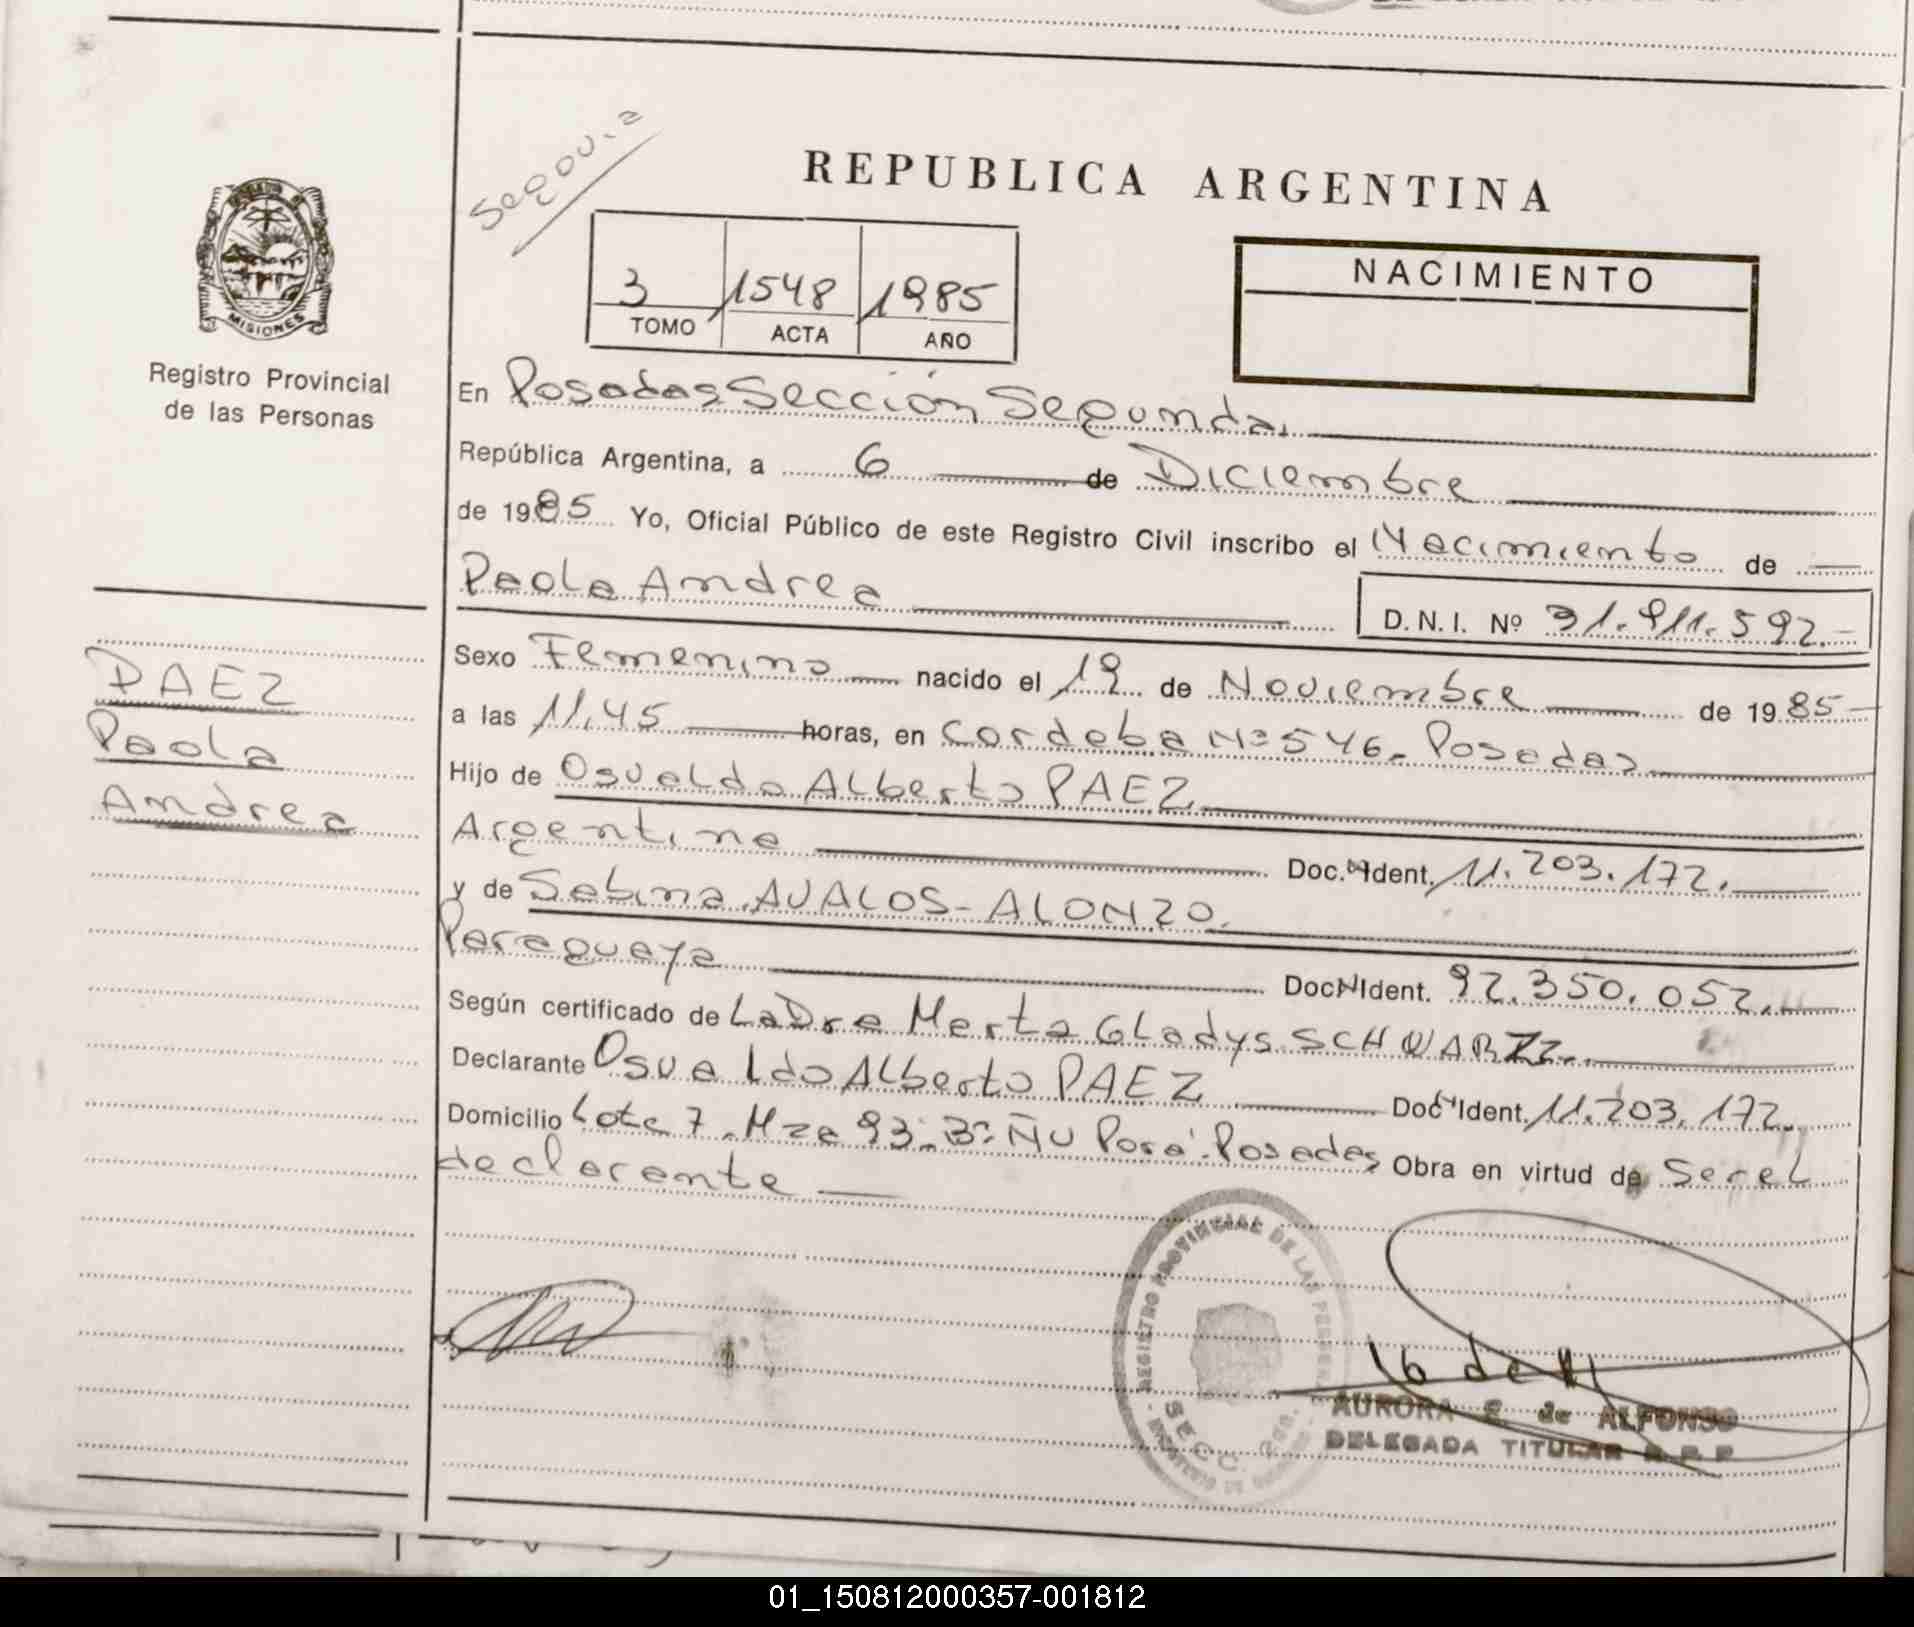 REPUBLICA ARGENTINA
MISIONES
Registro Provincial
de las Personas
3 1548 1985
TOMO ACTA AÑO
NACIMIENTO
En Posadas Sección Segunda.
República Argentina, a 6 de Diciembre
de 1985 Yo, Oficial Público de este Registro Civil inscribo el Nacimiento de
Paola Andrea
D.N.I. Nº 31.911.592.-
PAEZ
Paola
Andrea
Sexo Femenino nacido el 19 de Noviembre de 1985
a las 11,45 horas, en Cordoba Nº 546. Posadas
Hijo de Osvaldo Alberto PAEZ.
Argentino Doc. Ident. 11.203.172.
y de Sabina AVALOS-ALONZO.
Paraguaya Doc. Ident. 92.350.052.
Según certificado de La Dra Marta Gladys SCHWARZ
Declarante Osvaldo Alberto PAEZ Doc Ident. 11.203.172.
Domicilio Lote 7. Mza 93. Bº ÑU Porá. Posadas Obra en virtud de Ser el
declarante
REGISTRO PROVINCIAL DE LAS PERSONAS
SECC. 2da.
AURORA E. de ALFONSO
DELEGADA TITULAR R.P.P
01_150812000357-001812